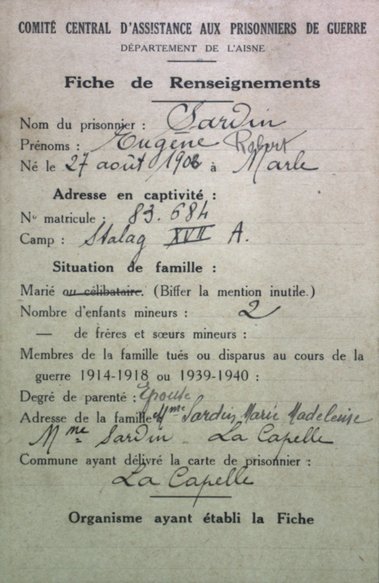 COMITÉ CENTRAL D'ASSISTANCE AUX PRISONNIERS DE GUERRE
DÉPARTEMENT DE L'AISNE
Fiche de Renseignements
Nom du prisonnier : Sardin
Prénoms : Eugène Robert
Né le 27 août 1908 à Marle
Adresse en captivité :
No matricule : 83.684
Camp : Stalag XVII A.
Situation de famille :
Marié ou célibataire. (Biffer la mention inutile.)
Nombre d'enfants mineurs : 2
— de frères et sœurs mineurs :
Membres de la famille tués ou disparus au cours de la
guerre 1914-1918 ou 1939-1940 :
Degré de parenté : Épouse
Adresse de la famille Mme Sardin Marie Madeleine
Mme Sardin La Capelle
Commune ayant délivré la carte de prisonnier :
La Capelle
Organisme ayant établi la Fiche